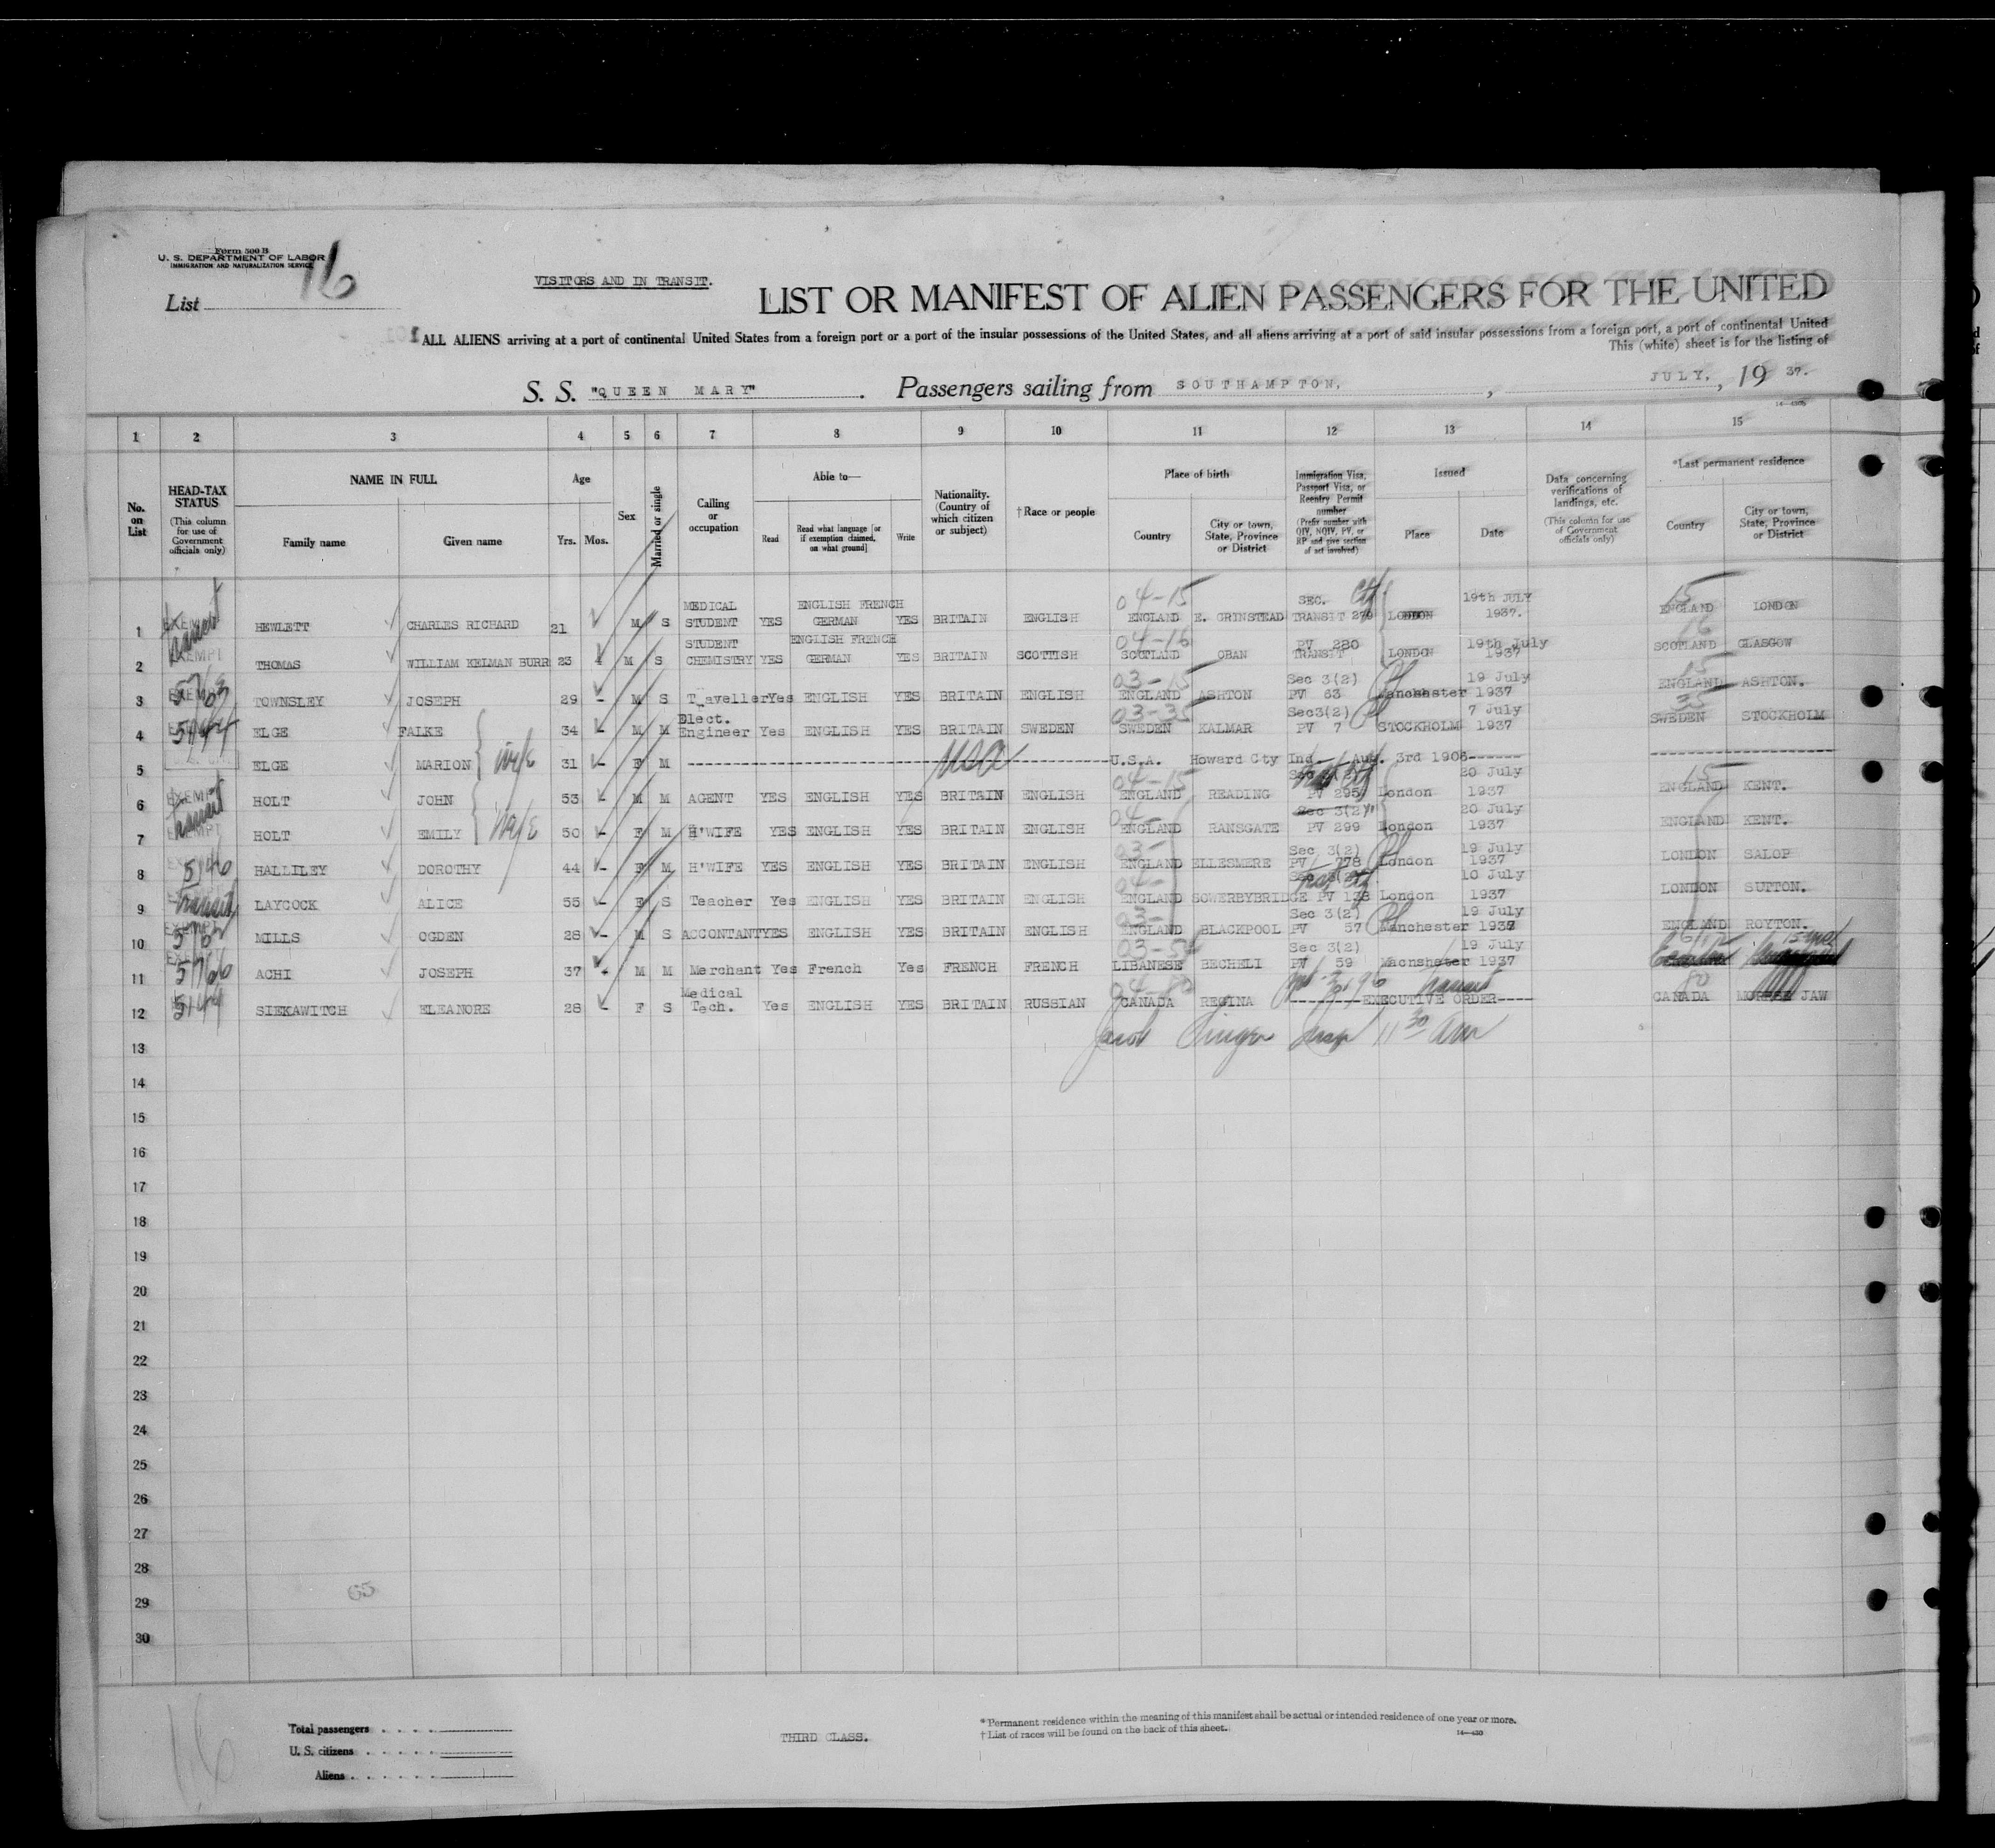 Form 500 B
U. S. DEPARTMENT OF LABOR
IMMIGRATION AND NATURALIZATION SERVICE
List 16
VISITORS AND IN TRANSIT.
LIST OR MANIFEST OF ALIEN PASSENGERS FOR THE UNITED
ALL ALIENS arriving at a port of continental United States from a foreign port or a port of the insular possessions of the United States, and all aliens arriving at a port of said insular possessions from a foreign port, a port of continental United
This (white) sheet is for the listing of
S. S. "QUEEN MARY" . Passengers sailing from SOUTHAMPTON, , JULY, , 19 37.
1 2 3 4 5 6 7 8 9 10 11 12 13 14 15
No. on List
HEAD-TAX STATUS (This column for use of Government officials only)
NAME IN FULL Family name Given name
Age Yrs. Mos.
Sex
Married or single
Calling or occupation
Able to— Read Read what language [or if exemption claimed, on what ground] Write
Nationality. (Country of which citizen or subject)
† Race or people
Place of birth Country City or town, State, Province or District
Immigration Visa, Passport Visa, or Reentry Permit number (Prefix number with QIV, NQIV, PV, or RP and give section of act involved)
Issued Place Date
Data concerning verifications of landings, etc. (This column for use of Government officials only)
*Last permanent residence Country City or town, State, Province or District
1 EXEMPT transit HEWLETT CHARLES RICHARD 21 M S MEDICAL STUDENT YES ENGLISH FRENCH GERMAN YES BRITAIN ENGLISH 04-15 ENGLAND E. GRINSTEAD SEC. TRANSIT 279 LONDON 19th JULY 1937. 15 ENGLAND LONDON
2 EXEMPT THOMAS WILLIAM KELMAN BURR 23 M S STUDENT CHEMISTRY YES ENGLISH FRENCH GERMAN YES BRITAIN SCOTTISH 04-16 SCOTLAND OBAN PV 280 TRANSIT LONDON 19th July 1937 16 SCOTLAND GLASGOW
3 TOWNSLEY JOSEPH 29 - M S T aveller Yes ENGLISH YES BRITAIN ENGLISH 03-15 ENGLAND ASHTON Sec 3(2) PV 63 Manchester 19 July 1937 15 ENGLAND ASHTON.
4 ELGE FALKE 34 - M M Elect. Engineer Yes ENGLISH YES BRITAIN SWEDEN 03-35 SWEDEN KALMAR Sec3(2) PV 7 STOCKHOLM 7 July 1937 35 SWEDEN STOCKHOLM
5 ELGE MARION wife 31 - F M USA U.S.A. Howard Cty Ind. Aug. 3rd 1906
6 EXEMPT transit HOLT JOHN 53 - M M AGENT YES ENGLISH YES BRITAIN ENGLISH 04-15 ENGLAND READING PV 295 London 20 July 1937 15 ENGLAND KENT.
7 EXEMPT HOLT EMILY wife 50 - F M H'WIFE YES ENGLISH YES BRITAIN ENGLISH 04- ENGLAND RANSGATE Sec 3(2) PV 299 London 20 July 1937 ENGLAND KENT.
8 HALLILEY DOROTHY 44 - F M H'WIFE YES ENGLISH YES BRITAIN ENGLISH 03- ENGLAND ELLESMERE Sec 3(2) PV 778 London 19 July 1937 LONDON SALOP
9 transit LAYCOCK ALICE 55 - F S Teacher Yes ENGLISH YES BRITAIN ENGLISH 04- ENGLAND SOWERBYBRIDGE PV 138 London 10 July 1937 LONDON SUTTON.
10 MILLS OGDEN 28 - M S ACCONTANT YES ENGLISH YES BRITAIN ENGLISH 03- ENGLAND BLACKPOOL Sec 3(2) PV 57 Manchester 19 July 1937 ENGLAND ROYTON.
11 5760 ACHI JOSEPH 37 - M M Merchant Yes French Yes FRENCH FRENCH LIBANESE BECHELI Sec 3(2) PV 59 Macnsheter 19 July 1937
12 5144 SIEKAWITCH ELEANORE 28 - F S Medical Tech. Yes ENGLISH YES BRITAIN RUSSIAN 04-80 CANADA REGINA transit EXECUTIVE ORDER 80 CANADA JAW
Jacob Singer Insp 11 30 AM
13
14
15
16
17
18
19
20
21
22
23
24
25
26
27
28
65
29
30
16
Total passengers
U. S. citizens
Aliens
THIRD CLASS.
* Permanent residence within the meaning of this manifest shall be actual or intended residence of one year or more.
† List of races will be found on the back of this sheet.
14—430